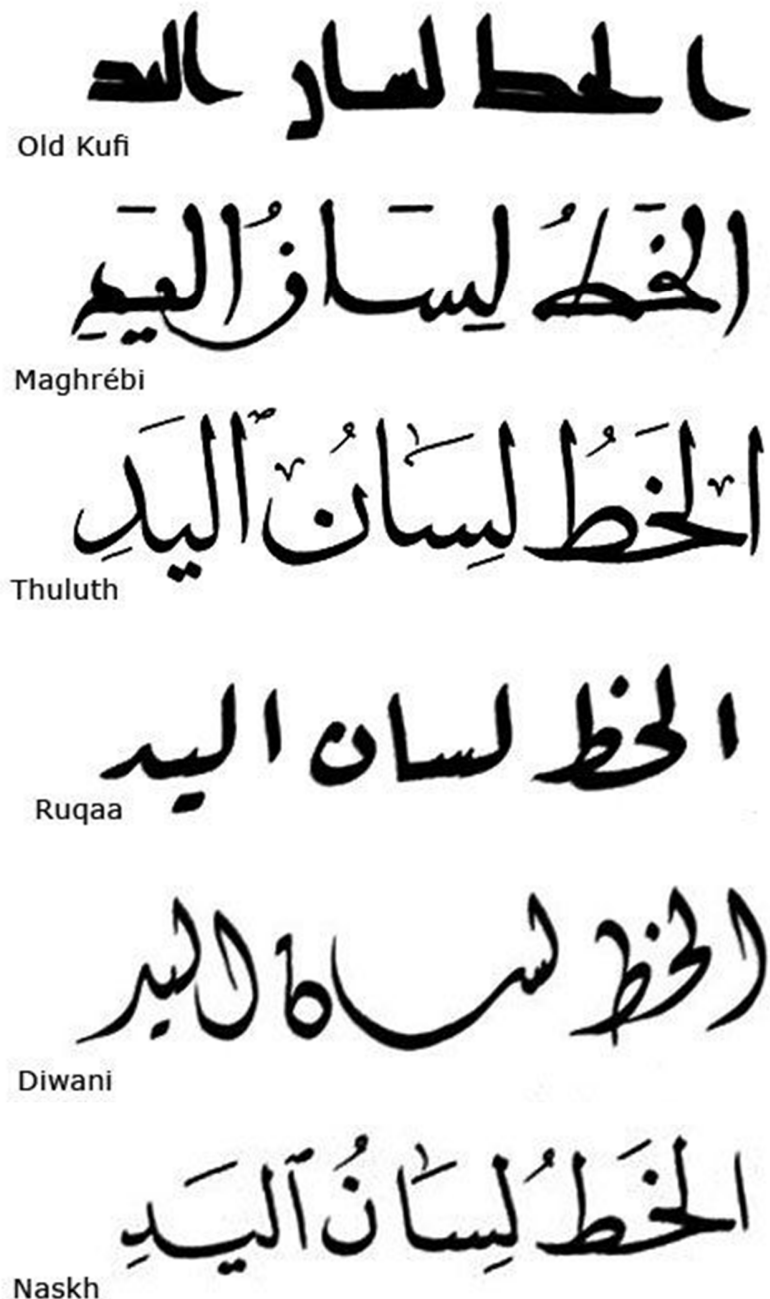 الخط لسان اليد
Old Kufi
الخَطُ لِسَانُ اليَدِ
Maghrébi
الخَطُ لِسَانُ ٱليَدِ
Thuluth
الخط لسان اليد
Ruqaa
الخط لسان اليد
Diwani
الخَطُ لِسَانُ ٱليَدِ
Naskh